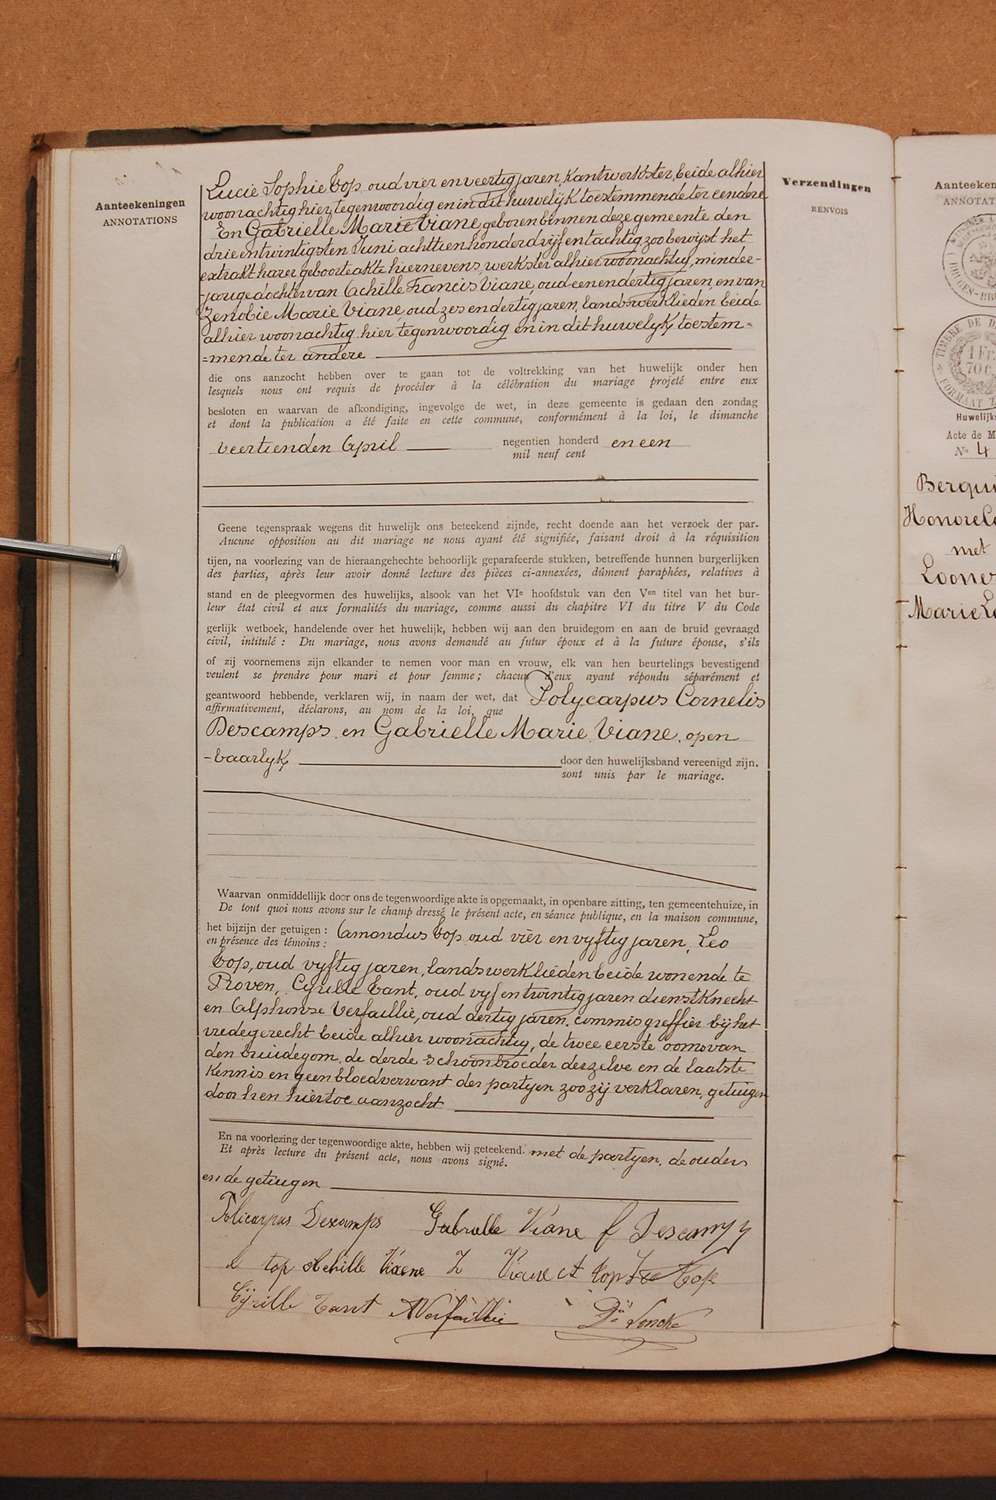 Aanteekeningen
ANNOTATIONS
Verzendingen
RENVOIS
Lucie Sophie Cop, oud vier en veertig jaren, Kantwerkster, beide alhier
woonachtig hier tegenwoordig en in dit huwelijk toestemmende ter eendere
En Gabrielle Marie Viane geboren binnen deze gemeente den
drie entwintigsten Juni achttien honderd vijf en tachtig zoo bewijst het
extrakt harer geboorteakte hiernevens, werkster alhier woonachtig, minder-
-jarige dochter van Achille Francis Viane, oud eenendertig jaren, en van
Zenobie Marie Viane oud zes en dertig jaren, landswerklieden beide
alhier woonachtig, hier tegenwoordig en in dit huwelyk toestem-
=mende ter andere
die ons aanzocht hebben over te gaan tot de voltrekking van het huwelijk onder hen
lesquels nous ont requis de procéder à la célébration du mariage projeté entre eux
besloten en waarvan de afkondiging, ingevolge de wet, in deze gemeente is gedaan den zondag
et dont la publication a été faite en cette commune, conformément à la loi, le dimanche
veertienden April negentien honderd en een
mil neuf cent
Geene tegenspraak wegens dit huwelijk ons beteekend zijnde, recht doende aan het verzoek der par-
Aucune opposition au dit mariage ne nous ayant été signifiée, faisant droit à la réquisition
tijen, na voorlezing van de hieraangehechte behoorlijk geparafeerde stukken, betreffende hunnen burgerlijken
des parties, après leur avoir donné lecture des pièces ci-annexées, dûment paraphées, relatives à
stand en de pleegvormen des huwelijks, alsook van het VIe hoofdstuk van den Ven titel van het bur-
leur état civil et aux formalités du mariage, comme aussi du chapitre VI du titre V du Code
gerlijk wetboek, handelende over het huwelijk, hebben wij aan den bruidegom en aan de bruid gevraagd
civil, intitulé : Du mariage, nous avons demandé au futur époux et à la future épouse, s'ils
of zij voornemens zijn elkander te nemen voor man en vrouw, elk van hen beurtelings bevestigend
veulent se prendre pour mari et pour femme ; chacun d'eux ayant répondu séparément et
geantwoord hebbende, verklaren wij, in naam der wet, dat Polycarpus Cornelis
affirmativement, déclarons, au nom de la loi, que
Descamps, en Gabrielle Marie Viane, open
-baarlyk door den huwelijksband vereenigd zijn.
sont unis par le mariage.
Waarvan onmiddelijk door ons de tegenwoordige akte is opgemaakt, in openbare zitting, ten gemeentehuize, in
De tout quoi nous avons sur le champ dressé le présent acte, en séance publique, en la maison commune,
het bijzijn der getuigen : Amondus Cop, oud vier en vyftig jaren, Leo
en présence des témoins :
Cop, oud vyftig jaren, landswerklieden beide wonende te
Proven, Cyrille Tant, oud vyf en twintig jaren dienstknecht
en Alphonse Verfaillie, oud dertig jaren, commis greffier by het
vredegerecht beide alhier woonachtig, de twee eerste ooms van
den bruidegom, de derde schoonbroeder deszelve en de laatste
Kennis en geen bloedverwant der partyen zoo zy verklaren, getuigen
door hen hiertoe aanzocht
En na voorlezing der tegenwoordige akte, hebben wij geteekend. met de partyen, de ouders
Et après lecture du présent acte, nous avons signé.
en de getuigen
Policarpus Descamps Gabrielle Viane f Descamps
l top Achille Viaene Z Viane et Cop
Cyrille Tant AVerfaillie
Aanteeken
ANNOTA
TIMBRE DE D
1 Fr.
70 C.
Huwelijks
Acte de M
No 4
Berqui
Honoré
met
Loones
Marie